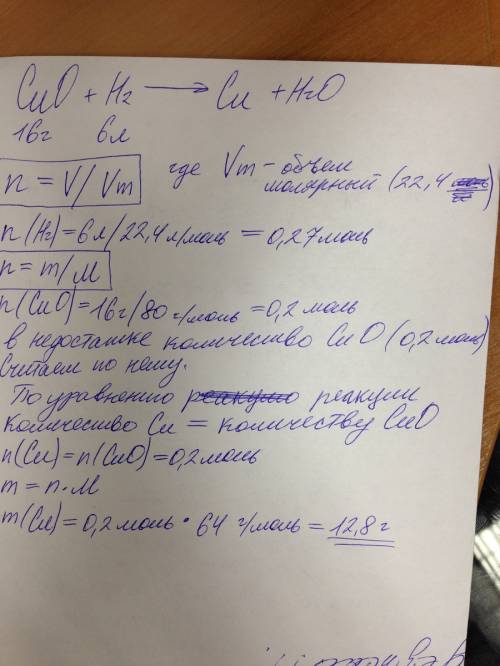 CuO + H₂ → Cu + H₂O
16г 6л
n = V/Vm где Vm – объем
молярный (22,4)
n(H₂)=6л/22,4л/моль = 0,27моль
n=m/M
n(CuO)=16г/80г/моль=0,2 моль
в недостатке количество CuO (0,2моль)
Считаем по нему.
По уравнению реакции
количество Cu = количеству CuO
n(Cu)=n(CuO)=0,2моль
m = n·M
m(Cu)=0,2моль·64 г/моль=12,8г